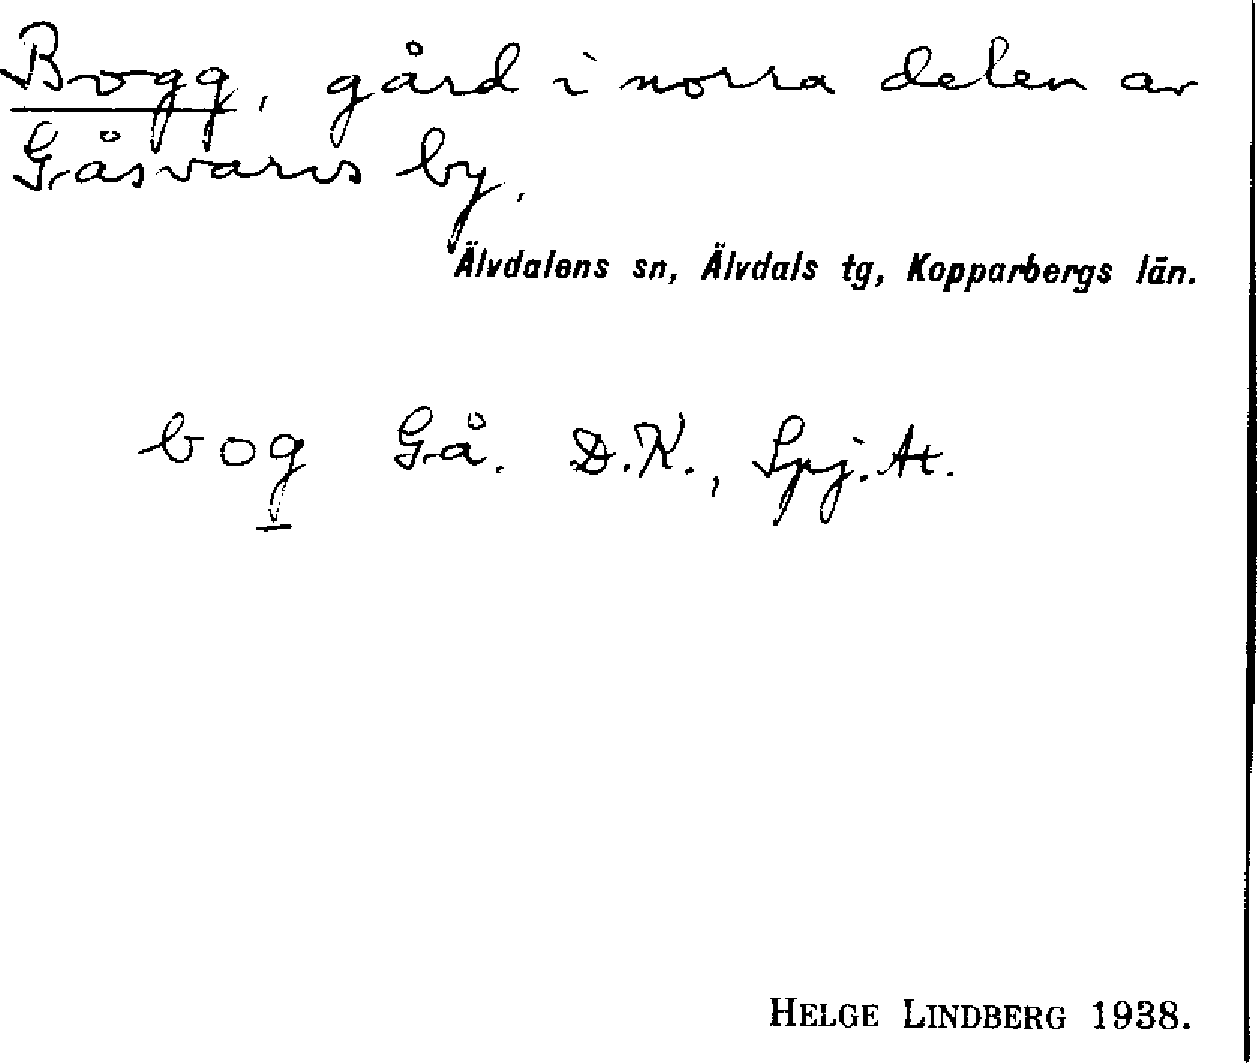 Bogg, gård i norra delen av
Gåsvarvs by.
Älvdalens sn, Älvdals tg, Kopparbergs län.
bog Gå. D.K., Spj. At.
HELGE LINDBERG 1938.